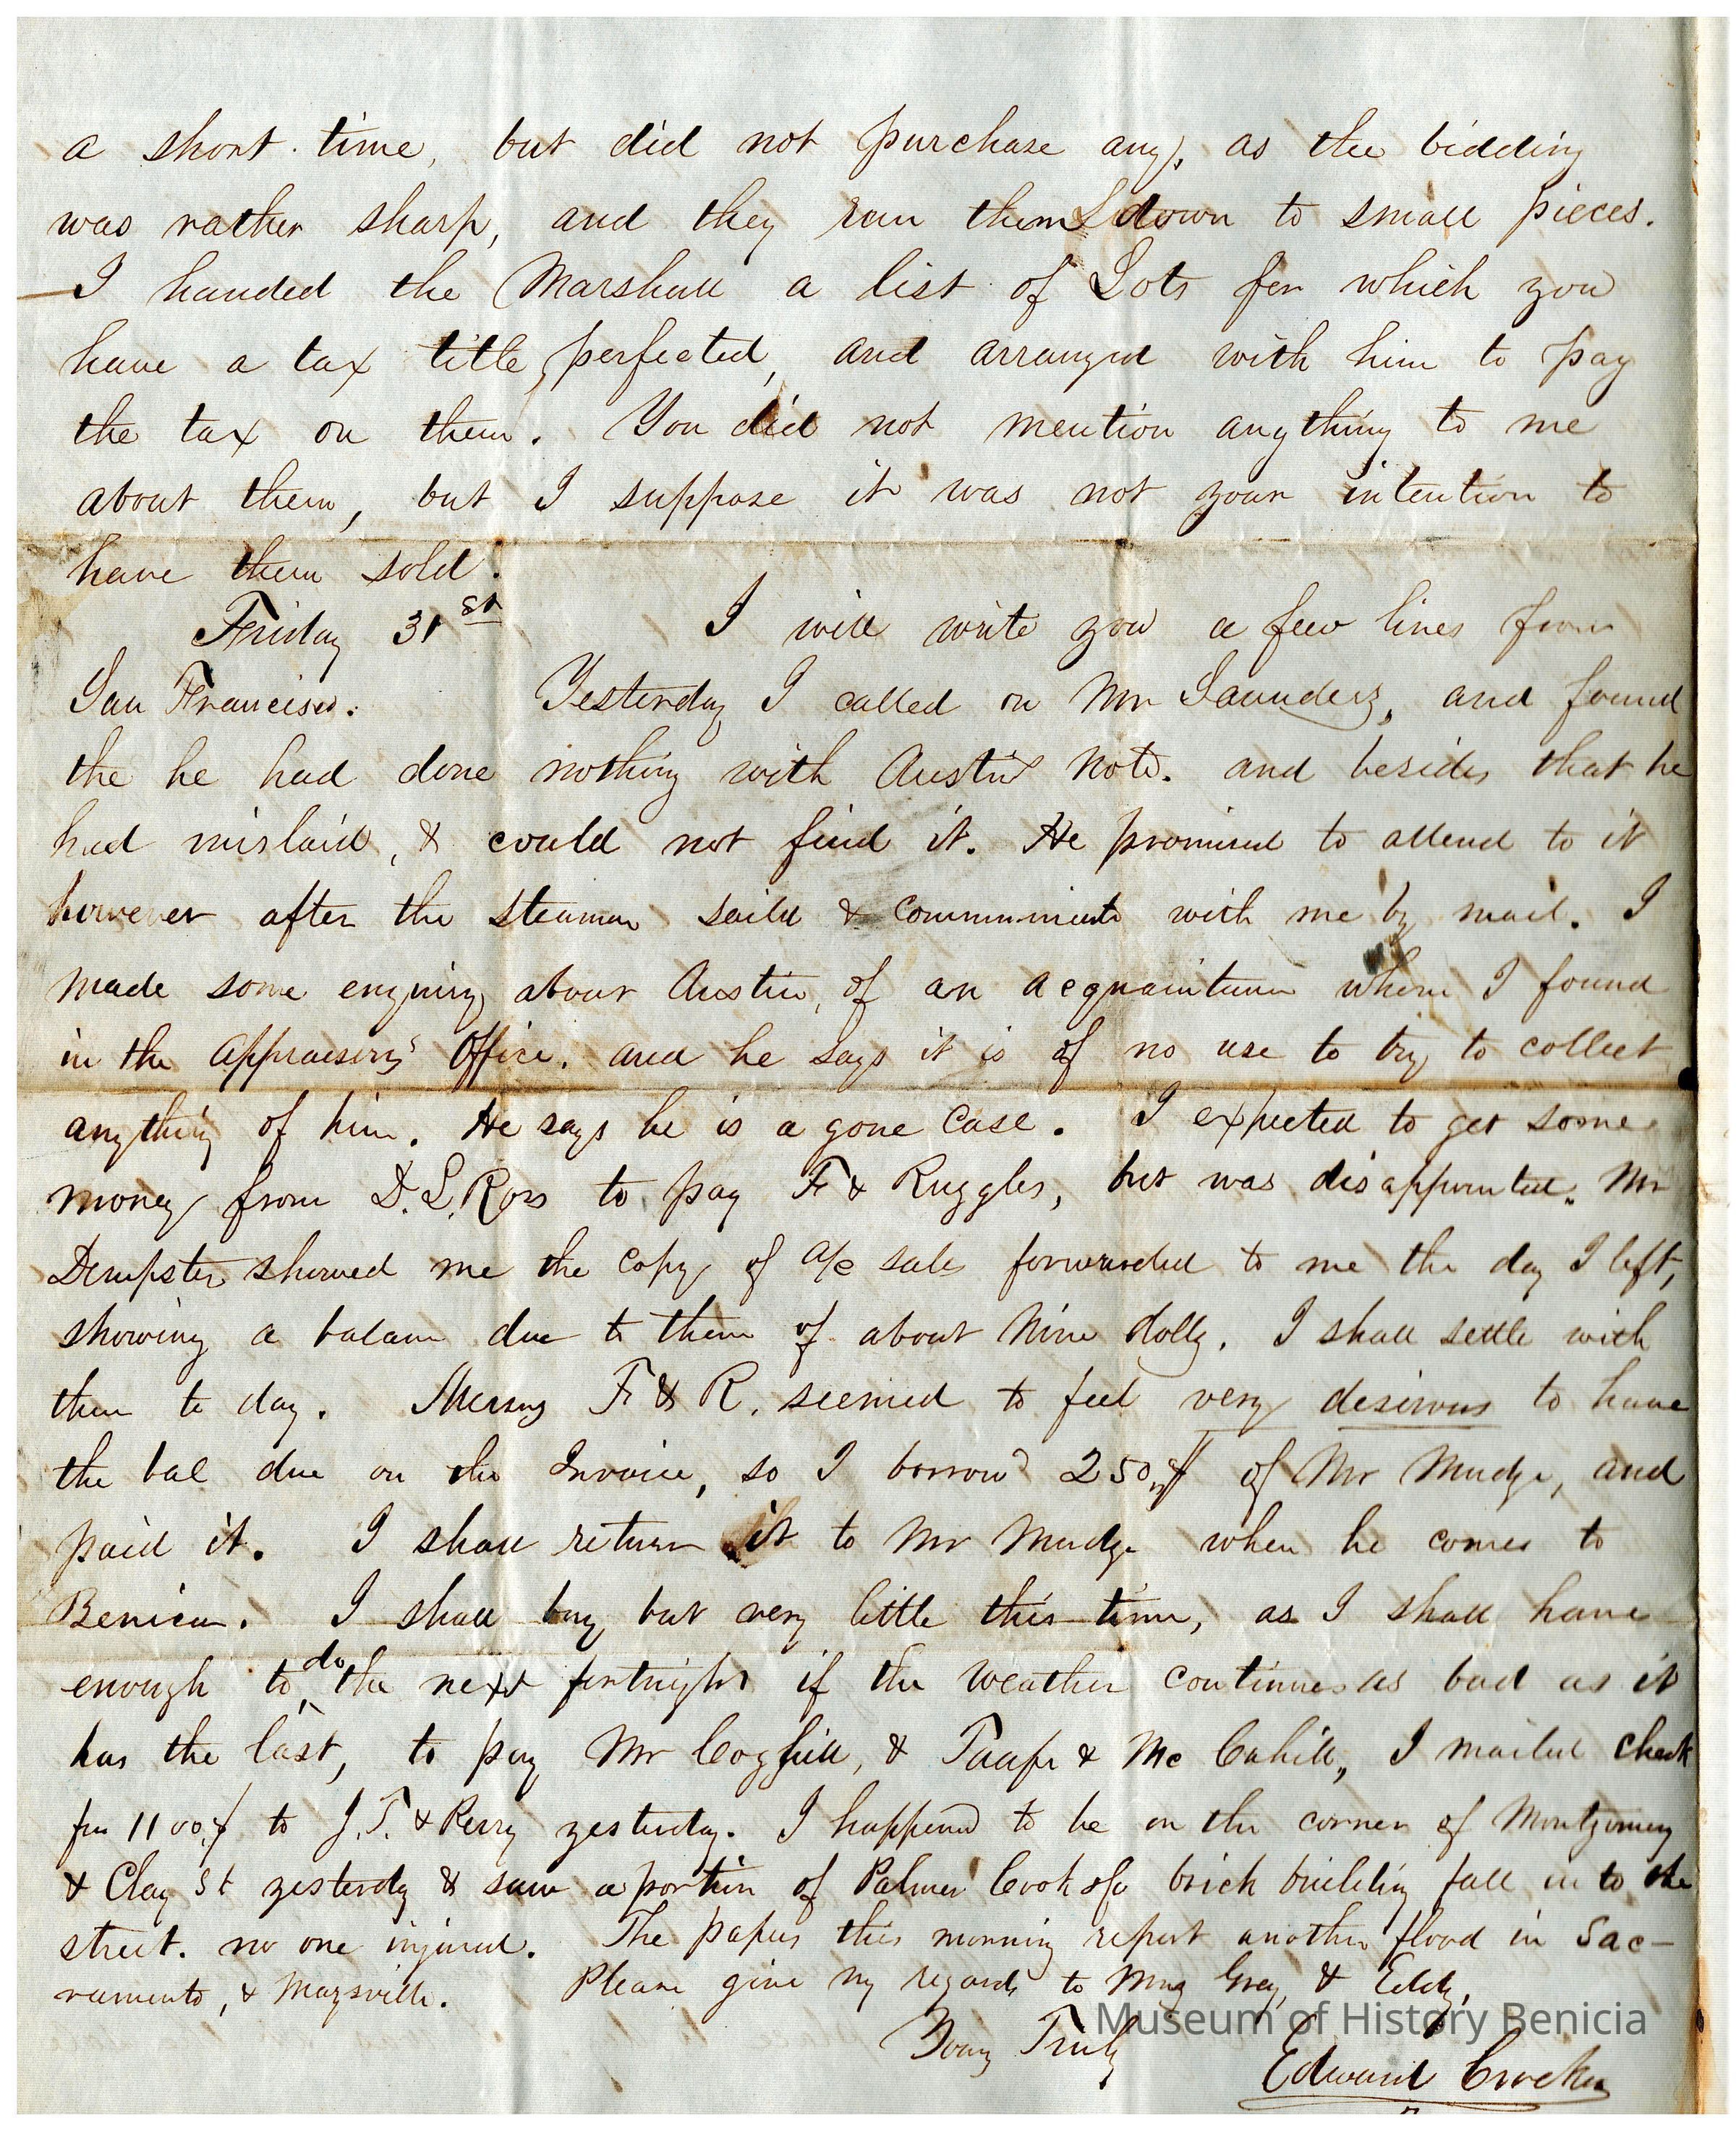 a short time, but did not purchase any, as the bidding
was rather sharp, and they run them down to small pieces.
I handed the Marshall a list of Lots for which you
have a tax title perfected, and arranged with him to pay
the tax on them. You did not mention anything to me
about them, but I suppose it was not your intention to
have them sold.
Friday 31st I will write you a few lines from
San Francisco. Yesterday I called on Mr Saunders, and found
the he had done nothing with Austin note. and besides that he
had mislaid, & could not find it. He promised to attend to it
however after the steamer saild & communicate with me by mail. I
made some enquiry about Austin, of an acquaintance whom I found
in the appraisers' Office. and he says it is of no use to try to collect
anything of him. He says he is a gone case. I expected to get some
money from D. L. Ross to pay F & Ruggles, but was disappointed. Mr
Dempster showed me the copy of a/c sale forwarded to me the day I left,
showing a balance due to them of about Nine dolls. I shall settle with
them to day. Messrs F & R. seemed to feel very desirous to have
the bal due on the Invoice, so I borrowd 250 $ of Mr Mudge, and
paid it. I shall return it to Mr Mudge when he comes to
Benicia. I shall buy but very little this time, as I shall have
enough to do the next fortnight if the weather continues as bad as it
has the last, to pay Mr Coghill, & Taafe & McCahill, I mailed check
for 1100 $ to J. T. & Perry yesterday. I happened to be on the corner of Montgomery
& Clay St yesterday & saw a portion of Palmer Cook & Co brick building fall in to the
street. no one injured. The papers this morning report another flood in Sac-
ramento, & Marysville. Please give my regards to Mrs Gray, & Eddy.
Yours Truly
Museum of History Benicia
Edward Crocker